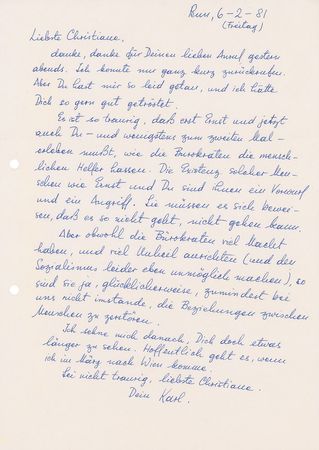 Bern, 6-2-81
(Freitag)
Liebste Christiane,
danke, danke für Deinen lieben Anruf gestern
abends. Ich konnte nur ganz kurz zurückrufen.
Aber Du hast mir so leid getan, und ich hätte
Dich so gern gut getröstet.
Es ist so traurig, daß erst Ernst und jetzt
auch Du - und wenigstens zum zweiten Mal -
erleben mußt, wie die Bürokraten die mensch-
lichen Helfer hassen. Die Existenz solcher Men-
schen wie Ernst und Du sind ihnen ein Vorwurf
und ein Angriff. Sie müssen es sich bewei-
sen, daß es so nicht geht, nicht gehen kann.
Aber obwohl die Bürokraten viel Macht
haben, und viel Unheil anrichten (und den
Sozialismus leider eben unmöglich machen), so
sind sie ja, glücklicherweise, zumindest bei
uns nicht imstande, die Beziehungen zwischen
Menschen zu zerstören.
Ich sehne mich danach, Dich doch etwas
länger zu sehen. Hoffentlich geht es, wenn
ich im März nach Wien komme.
Sei nicht traurig, liebste Christiane.
Dein Karl.